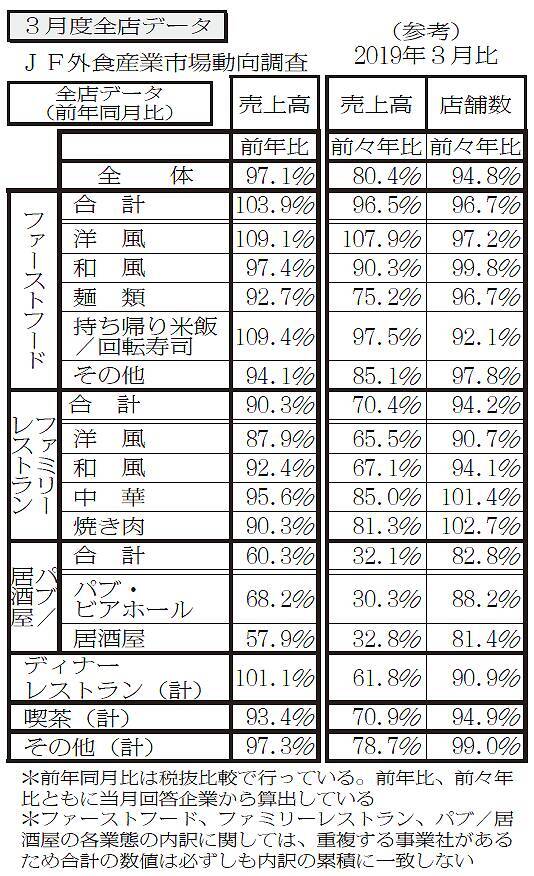 ３月度全店データ
（参考）
ＪＦ外食産業市場動向調査
2019年３月比
全店データ
(前年同月比)
売上高 売上高 店舗数
前年比 前々年比 前々年比
全　体 97.1% 80.4% 94.8%
ファーストフード
合　計 103.9% 96.5% 96.7%
洋　風 109.1% 107.9% 97.2%
和　風 97.4% 90.3% 99.8%
麺　類 92.7% 75.2% 96.7%
持ち帰り米飯
／回転寿司 109.4% 97.5% 92.1%
その他 94.1% 85.1% 97.8%
ファミリー
レストラン
合　計 90.3% 70.4% 94.2%
洋　風 87.9% 65.5% 90.7%
和　風 92.4% 67.1% 94.1%
中　華 95.6% 85.0% 101.4%
焼き肉 90.3% 81.3% 102.7%
パブ／
居酒屋
合　計 60.3% 32.1% 82.8%
パブ・
ビアホール 68.2% 30.3% 88.2%
居酒屋 57.9% 32.8% 81.4%
ディナー
レストラン（計） 101.1% 61.8% 90.9%
喫茶（計） 93.4% 70.9% 94.9%
その他（計） 97.3% 78.7% 99.0%
＊前年同月比は税抜比較で行っている。前年比、前々年
比ともに当月回答企業から算出している
＊ファーストフード、ファミリーレストラン、パブ／居
酒屋の各業態の内訳に関しては、重複する事業社がある
ため合計の数値は必ずしも内訳の累積に一致しない